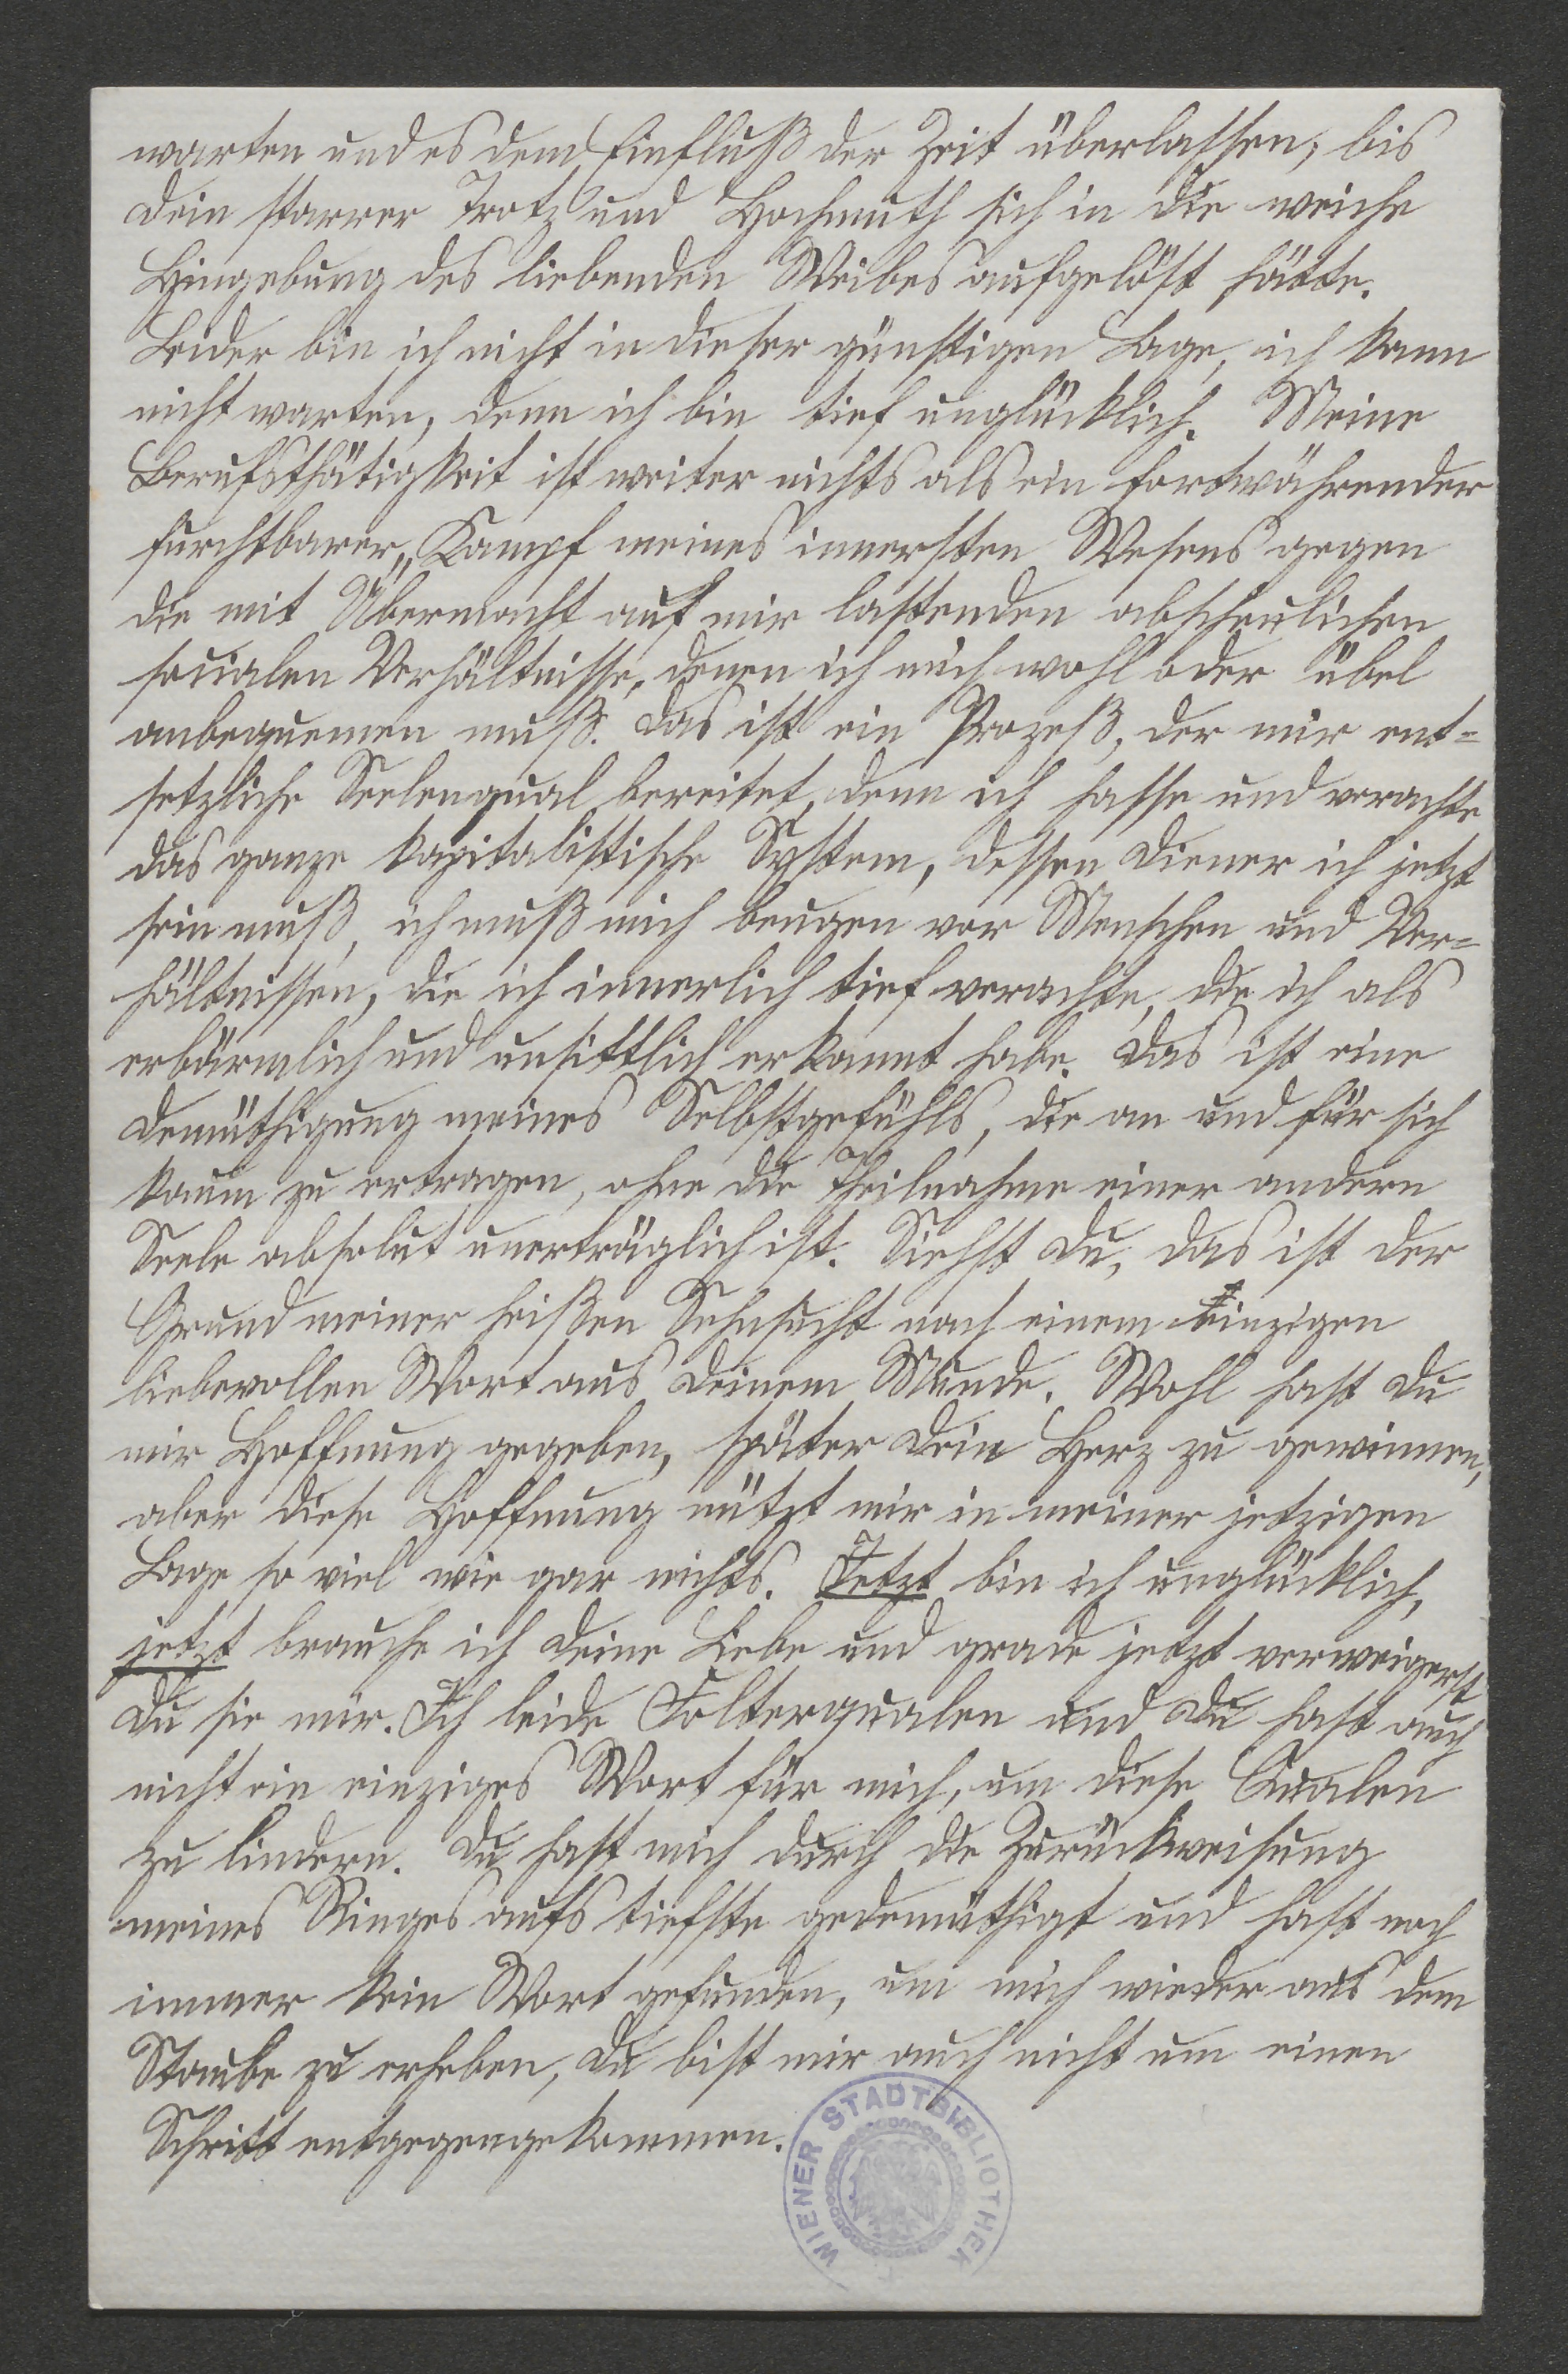 warten und es dem Einfluß der Zeit überlassen, bis
Dein starrer Trotz und Hochmuth sich in die weiche
Hingebung des liebenden Weibes aufgelöst hätte.
Leider bin ich nicht in dieser günstigen Lage, ich kann
nicht warten, denn ich bin tief unglücklich. Meine
Berufsthätigkeit ist weiter nichts als ein fortwährender
furchtbarer Kampf meines innersten Wesens gegen
die mit Übermacht auf mir lastenden abscheulichen
socialen Verhältnisse, denen ich mich wohl oder übel
anbequemen muß. Das ist ein Prozeß, der mir ent=
setzliche Seelenqual bereitet, denn ich hasse und verachte
das ganze kapitalistische System, dessen Diener ich jetzt
sein muß, ich muß mich beugen vor Menschen und Ver=
hältnissen, die ich innerlich tief verachte, die ich als
erbärmlich und unsittlich erkannt habe. Das ist eine
Demüthigung meines Selbstgefühls, die an und für sich
kaum zu ertragen, ohne die Theilnahme einer andern
Seele absolut unerträglich ist. Siehst Du, das ist der
Grund meiner heißen Sehnsucht nach einem Einzigen
liebevollen Wort aus Deinem Munde. Wohl hast Du
mir Hoffnung gegeben, später Dein Herz zu gewinnen,
aber diese Hoffnung nützt mir in meiner jetzigen
Lage so viel wie gar nichts. Jetzt bin ich unglücklich,
jetzt brauche ich Deine Liebe und grade jetzt verweigerst
Du sie mir. Ich leide Folterqualen und Du hast auch
nicht ein einziges Wort für mich, um diese Qualen
zu lindern. Du hast mich durch die Zurückweisung
meines Ringes aufs tiefste gedemüthigt und hast noch
immer kein Wort gefunden, um mich wieder aus dem
Staube zu erheben, Du bist mir auch nicht um einen
Schritt entgegengekommen.
WIENER STADTBIBLIOTHEK